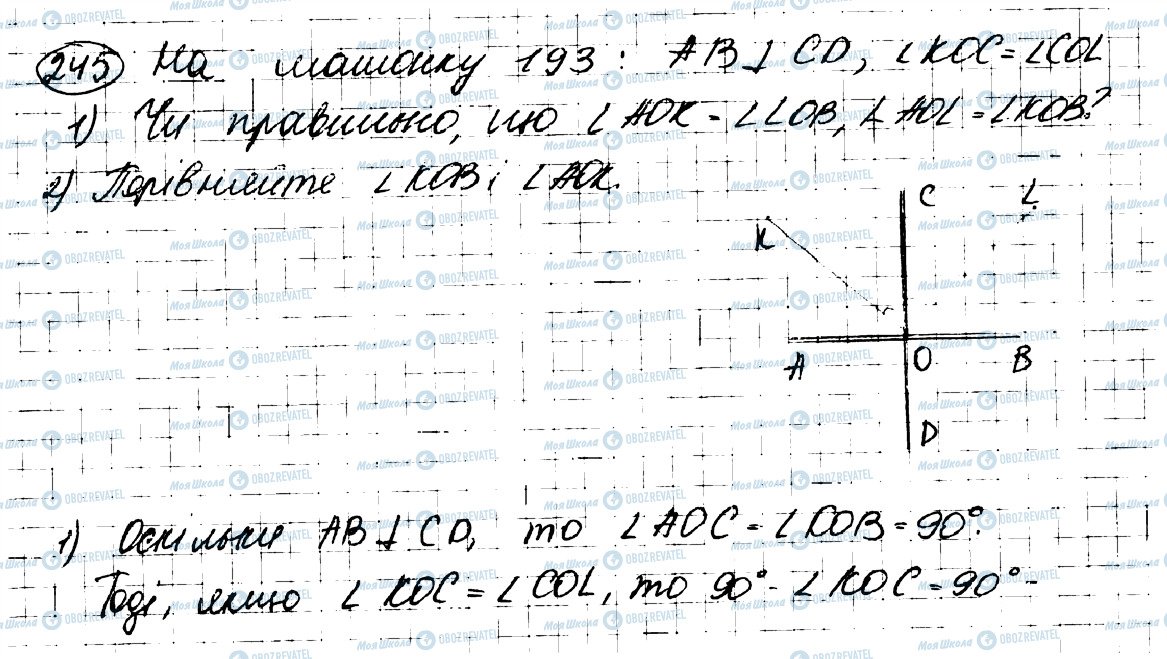 245 На малюнку 193: AB⊥CD, ∠KOC=∠COL
1) Чи правильно, що ∠AOK = ∠LOB, ∠AOL = ∠KOB?
2) Порівняйте ∠KOB і ∠AOK.
C L
K
A O B
D
1) Оскільки AB⊥CD, то ∠AOC = ∠COB = 90°.
Тоді, якщо ∠KOC = ∠COL, то 90° - ∠KOC = 90° -